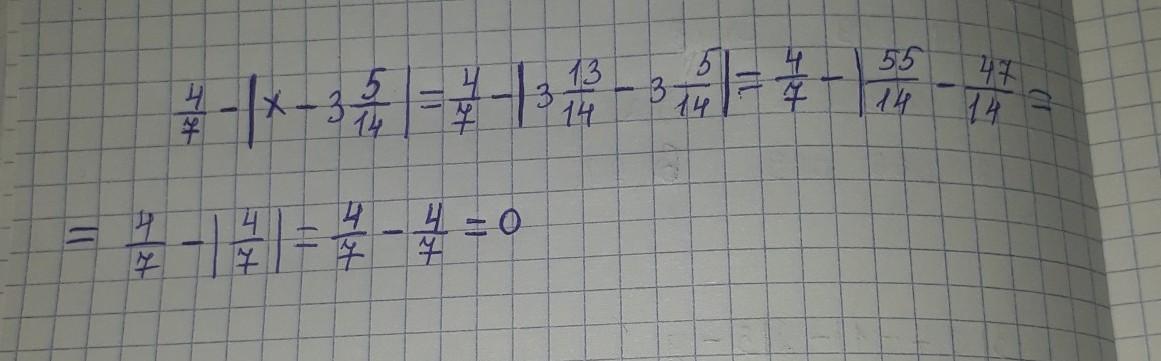 4/7 - |x - 3 5/14| = 4/7 - |3 13/14 - 3 5/14| = 4/7 - |55/14 - 47/14 =
= 4/7 - |4/7| = 4/7 - 4/7 = 0